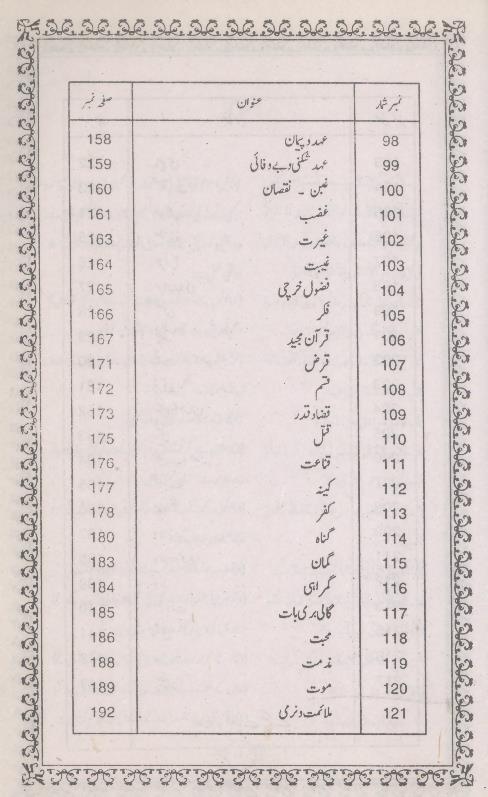 نمبر شمار عنوان صفحہ نمبر
98 عہد و پیمان 158
99 عہد شکنی و بے وفائی 159
100 غبن ۔ نقصان 160
101 غضب 161
102 غیرت 163
103 غیبت 164
104 فضول خرچی 165
105 فکر 166
106 قرآن مجید 167
107 قرض 171
108 قسم 172
109 قضا و قدر 173
110 قتل 175
111 قناعت 176
112 کینہ 177
113 کفر 178
114 گناہ 180
115 گمان 183
116 گمراہی 184
117 گالی بری بات 185
118 محبت 186
119 مذمت 188
120 موت 189
121 ملائمت و نرمی 192